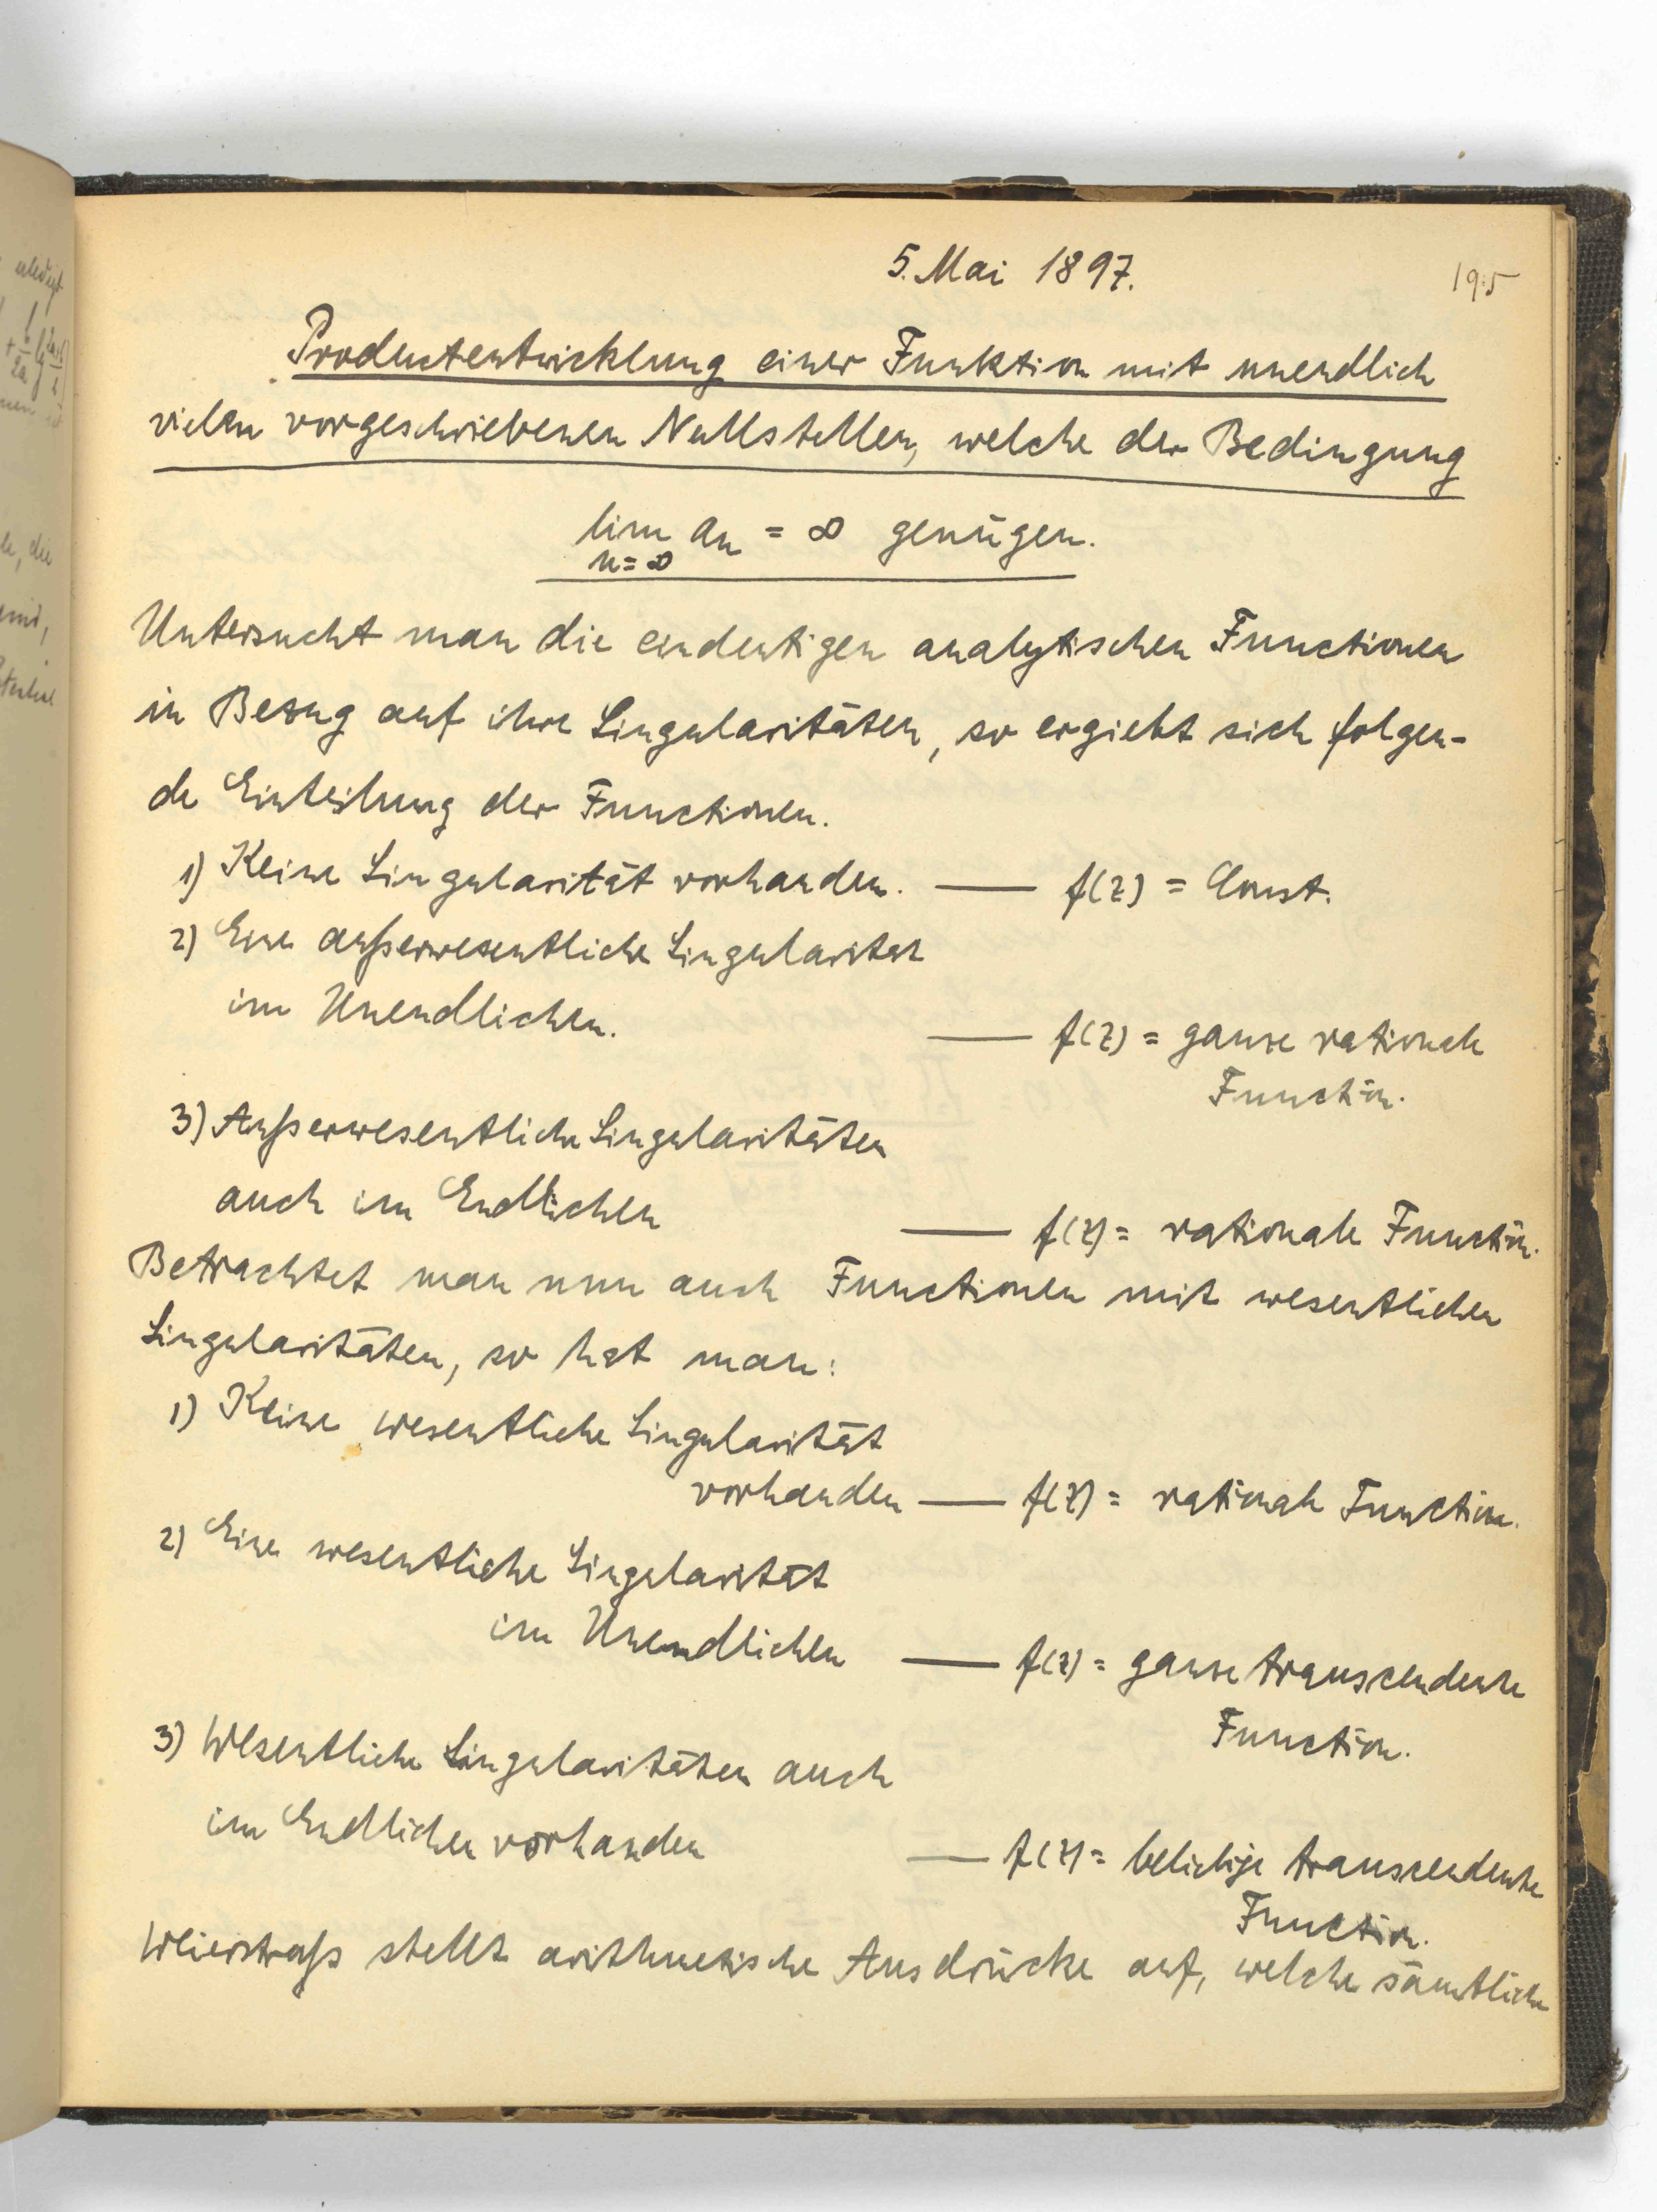 5. Mai 1897.
195
Productentwicklung einer Funktion mit unendlich
vielen vorgeschriebenen Nullstellen, welche der Bedingung
lim aₙ = ∞ genügen.
n=∞
Untersucht man die eindeutigen analytischen Functionen
in Bezug auf ihre Singularitäten, so ergiebt sich folgen-
de Einteilung der Functionen.
1) Keine Singularität vorhanden. — f(z) = Const.
2) Eine außerwesentliche Singularität
im Unendlichen.
— f(z) = ganze rationale
Function.
3) Außerwesentliche Singularitäten
auch im Endlichen
— f(z) = rationale Function.
Betrachtet man nun auch Functionen mit wesentlichen
Singularitäten, so hat man:
1) Keine wesentliche Singularität
vorhanden — f(z) = rationale Function.
2) Eine wesentliche Singularität
im Unendlichen — f(z) = ganze transcendente
Function.
3) Wesentliche Singularitäten auch
im Endlichen vorhanden
— f(z) = beliebige transcendente
Function.
Weierstraß stellt arithmetische Ausdrücke auf, welche sämtliche